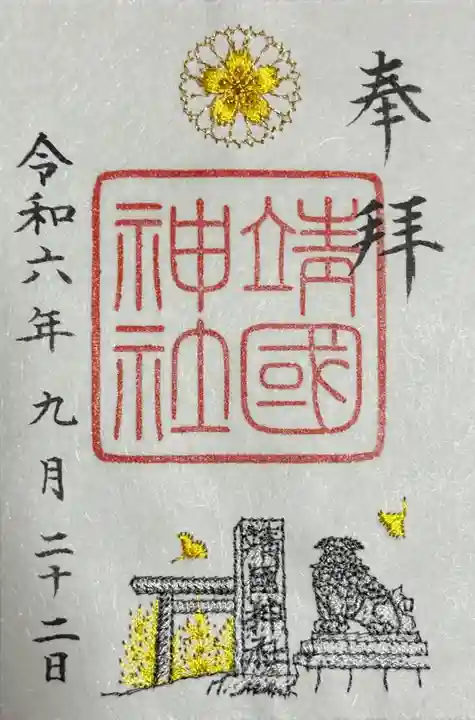 奉拝
靖國
神社
靖國神社
令和六年九月二十二日